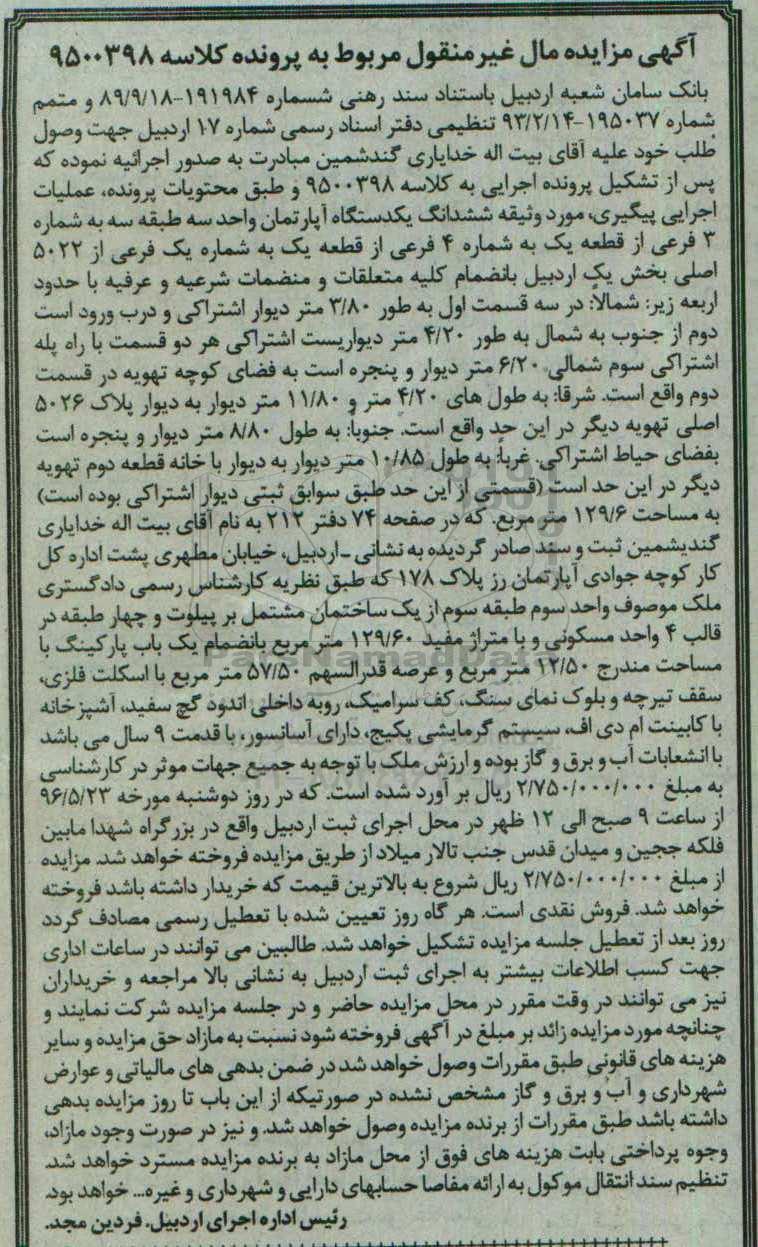 آگهی مزایده مال غیرمنقول مربوط به پرونده کلاسه ۹۵۰۰۳۹۸
بانک سامان شعبه اردبیل باستناد سند رهنی شسماره ۱۹۱۹۸۴-۸۹/۹/۱۸ و متمم
شماره ۱۹۵۰۳۷-۹۳/۲/۱۴ تنظیمی دفتر اسناد رسمی شماره ۱۷ اردبیل جهت وصول
طلب خود علیه آقای بیت اله خدایاری گندشمین مبادرت به صدور اجرائیه نموده که
پس از تشکیل پرونده اجرایی به کلاسه ۹۵۰۰۳۹۸ و طبق محتویات پرونده، عملیات
اجرایی پیگیری، مورد وثیقه ششدانگ یکدستگاه آپارتمان واحد سه طبقه سه به شماره
۳ فرعی از قطعه یک به شماره ۴ فرعی از قطعه یک به شماره یک فرعی از ۵۰۲۲
اصلی بخش یک اردبیل بانضمام کلیه متعلقات و منضمات شرعیه و عرفیه با حدود
اربعه زیر: شمالاً: در سه قسمت اول به طور ۳/۸۰ متر دیوار اشتراکی و درب ورود است
دوم از جنوب به شمال به طور ۴/۲۰ متر دیواریست اشتراکی هر دو قسمت با راه پله
اشتراکی سوم شمالی ۶/۲۰ متر دیوار و پنجره است به فضای کوچه تهویه در قسمت
دوم واقع است. شرقا: به طول های ۴/۲۰ متر و ۱۱/۸۰ متر دیوار به دیوار پلاک ۵۰۲۶
اصلی تهویه دیگر در این حد واقع است. جنوباً: به طول ۸/۸۰ متر دیوار و پنجره است
بفضای حیاط اشتراکی. غرباً: به طول ۱۰/۸۵ متر دیوار به دیوار با خانه قطعه دوم تهویه
دیگر در این حد است (قسمتی از این حد طبق سوابق ثبتی دیوار اشتراکی بوده است)
به مساحت ۱۲۹/۶ متر مربع. که در صفحه ۷۴ دفتر ۲۱۲ به نام آقای بیت اله خدایاری
گندیشمین ثبت و سند صادر گردیده به نشانی -اردبیل، خیابان مطهری پشت اداره کل
کار کوچه جوادی آپارتمان رز پلاک ۱۷۸ که طبق نظریه کارشناس رسمی دادگستری
ملک موصوف واحد سوم طبقه سوم از یک ساختمان مشتمل بر پیلوت و چهار طبقه در
قالب ۴ واحد مسکونی و با متراژ مفید ۱۲۹/۶۰ متر مربع بانضمام یک باب پارکینگ با
مساحت مندرج ۱۲/۵۰ متر مربع و عرصه قدرالسهم ۵۷/۵۰ متر مربع با اسکلت فلزی،
سقف تیرچه و بلوک نمای سنگ، کف سرامیک، رویه داخلی اندود گچ سفید، آشپزخانه
با کابینت ام دی اف، سیستم گرمایشی پکیج، دارای آسانسور، با قدمت ۹ سال می باشد
با انشعابات آب و برق و گاز بوده و ارزش ملک با توجه به جمیع جهات موثر در کارشناسی
به مبلغ ۲/۷۵۰/۰۰۰/۰۰۰ ریال بر آورد شده است. که در روز دوشنبه مورخه ۹۶/۵/۲۳
از ساعت ۹ صبح الی ۱۲ ظهر در محل اجرای ثبت اردبیل واقع در بزرگراه شهدا مابین
فلکه ججین و میدان قدس جنب تالار میلاد از طریق مزایده فروخته خواهد شد. مزایده
از مبلغ ۲/۷۵۰/۰۰۰/۰۰۰ ریال شروع به بالاترین قیمت که خریدار داشته باشد فروخته
خواهد شد. فروش نقدی است. هر گاه روز تعیین شده با تعطیل رسمی مصادف گردد
روز بعد از تعطیل جلسه مزایده تشکیل خواهد شد. طالبین می توانند در ساعات اداری
جهت کسب اطلاعات بیشتر به اجرای ثبت اردبیل به نشانی بالا مراجعه و خریداران
نیز می توانند در وقت مقرر در محل مزایده حاضر و در جلسه مزایده شرکت نمایند و
چنانچه مورد مزایده زائد بر مبلغ در آگهی فروخته شود نسبت به مازاد حق مزایده و سایر
هزینه های قانونی طبق مقررات وصول خواهد شد در ضمن بدهی های مالیاتی و عوارض
شهرداری و آب و برق و گاز مشخص نشده در صورتیکه از این باب تا روز مزایده بدهی
داشته باشد طبق مقررات از برنده مزایده وصول خواهد شد. و نیز در صورت وجود مازاد،
وجوه پرداختی بابت هزینه های فوق از محل مازاد به برنده مزایده مسترد خواهد شد.
تنظیم سند انتقال موکول به ارائه مفاصا حسابهای دارایی و شهرداری و غیره... خواهد بود.
رئیس اداره اجرای اردبیل. فردین مجد.